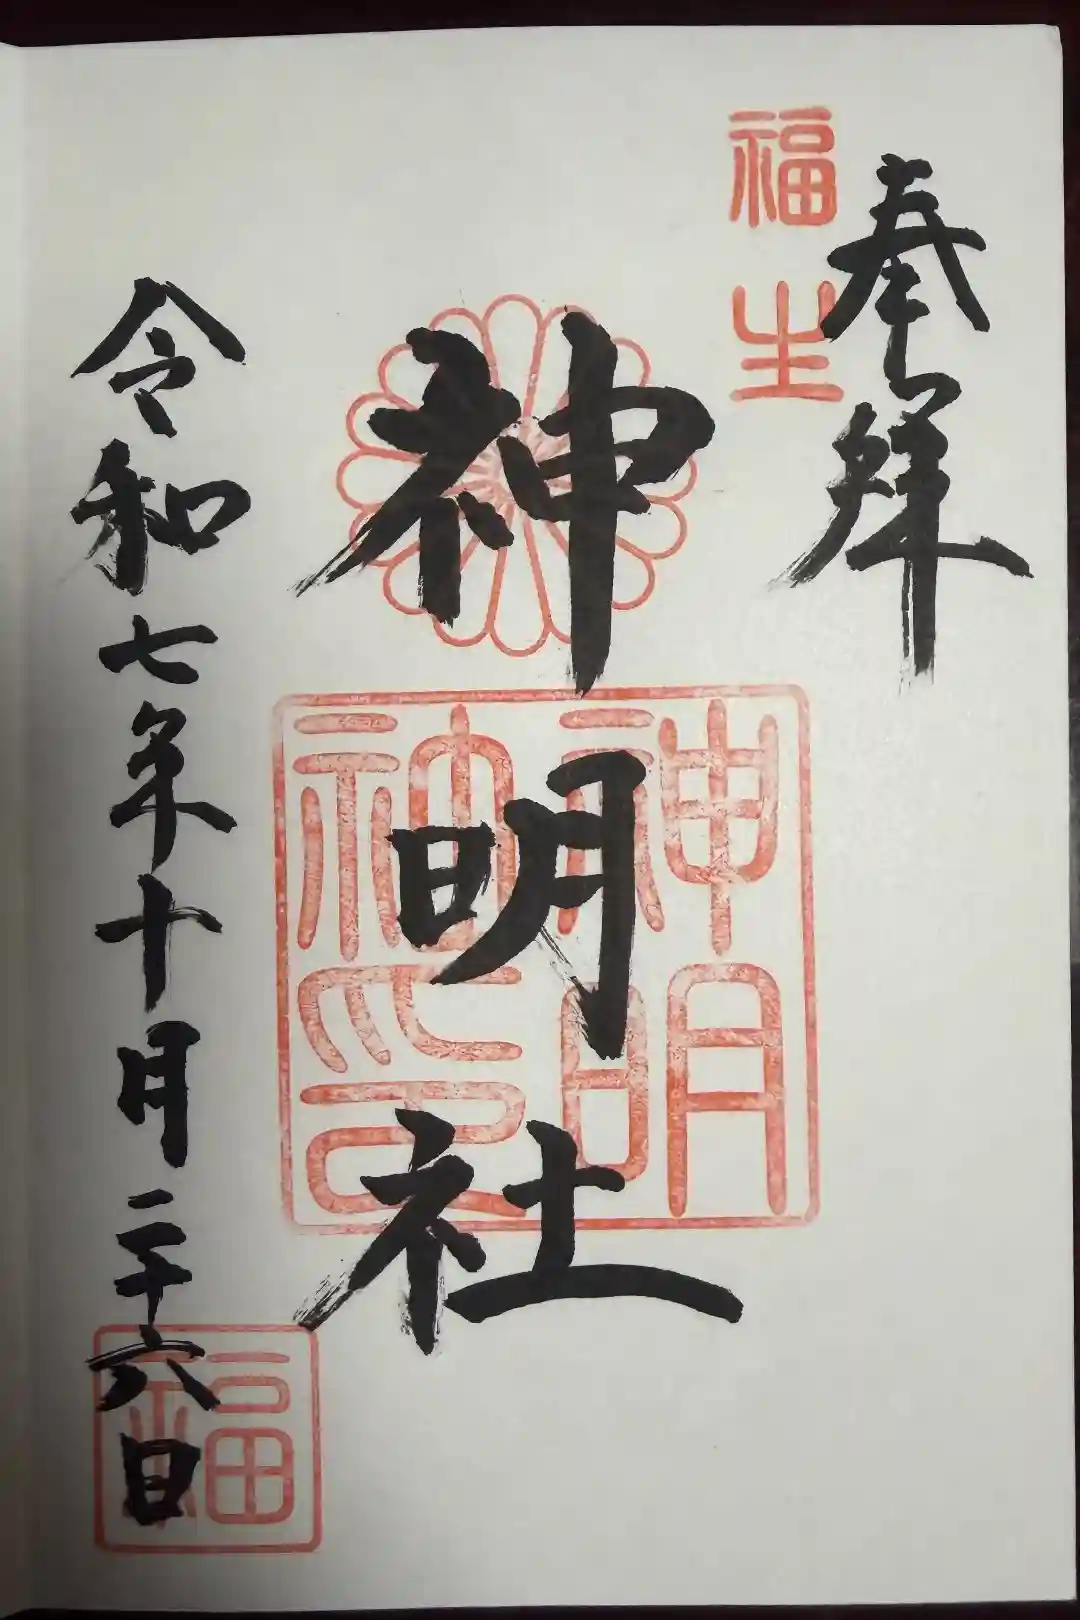 奉拜
福生
神明社
神明
神印
令和七年十月二十六日
福